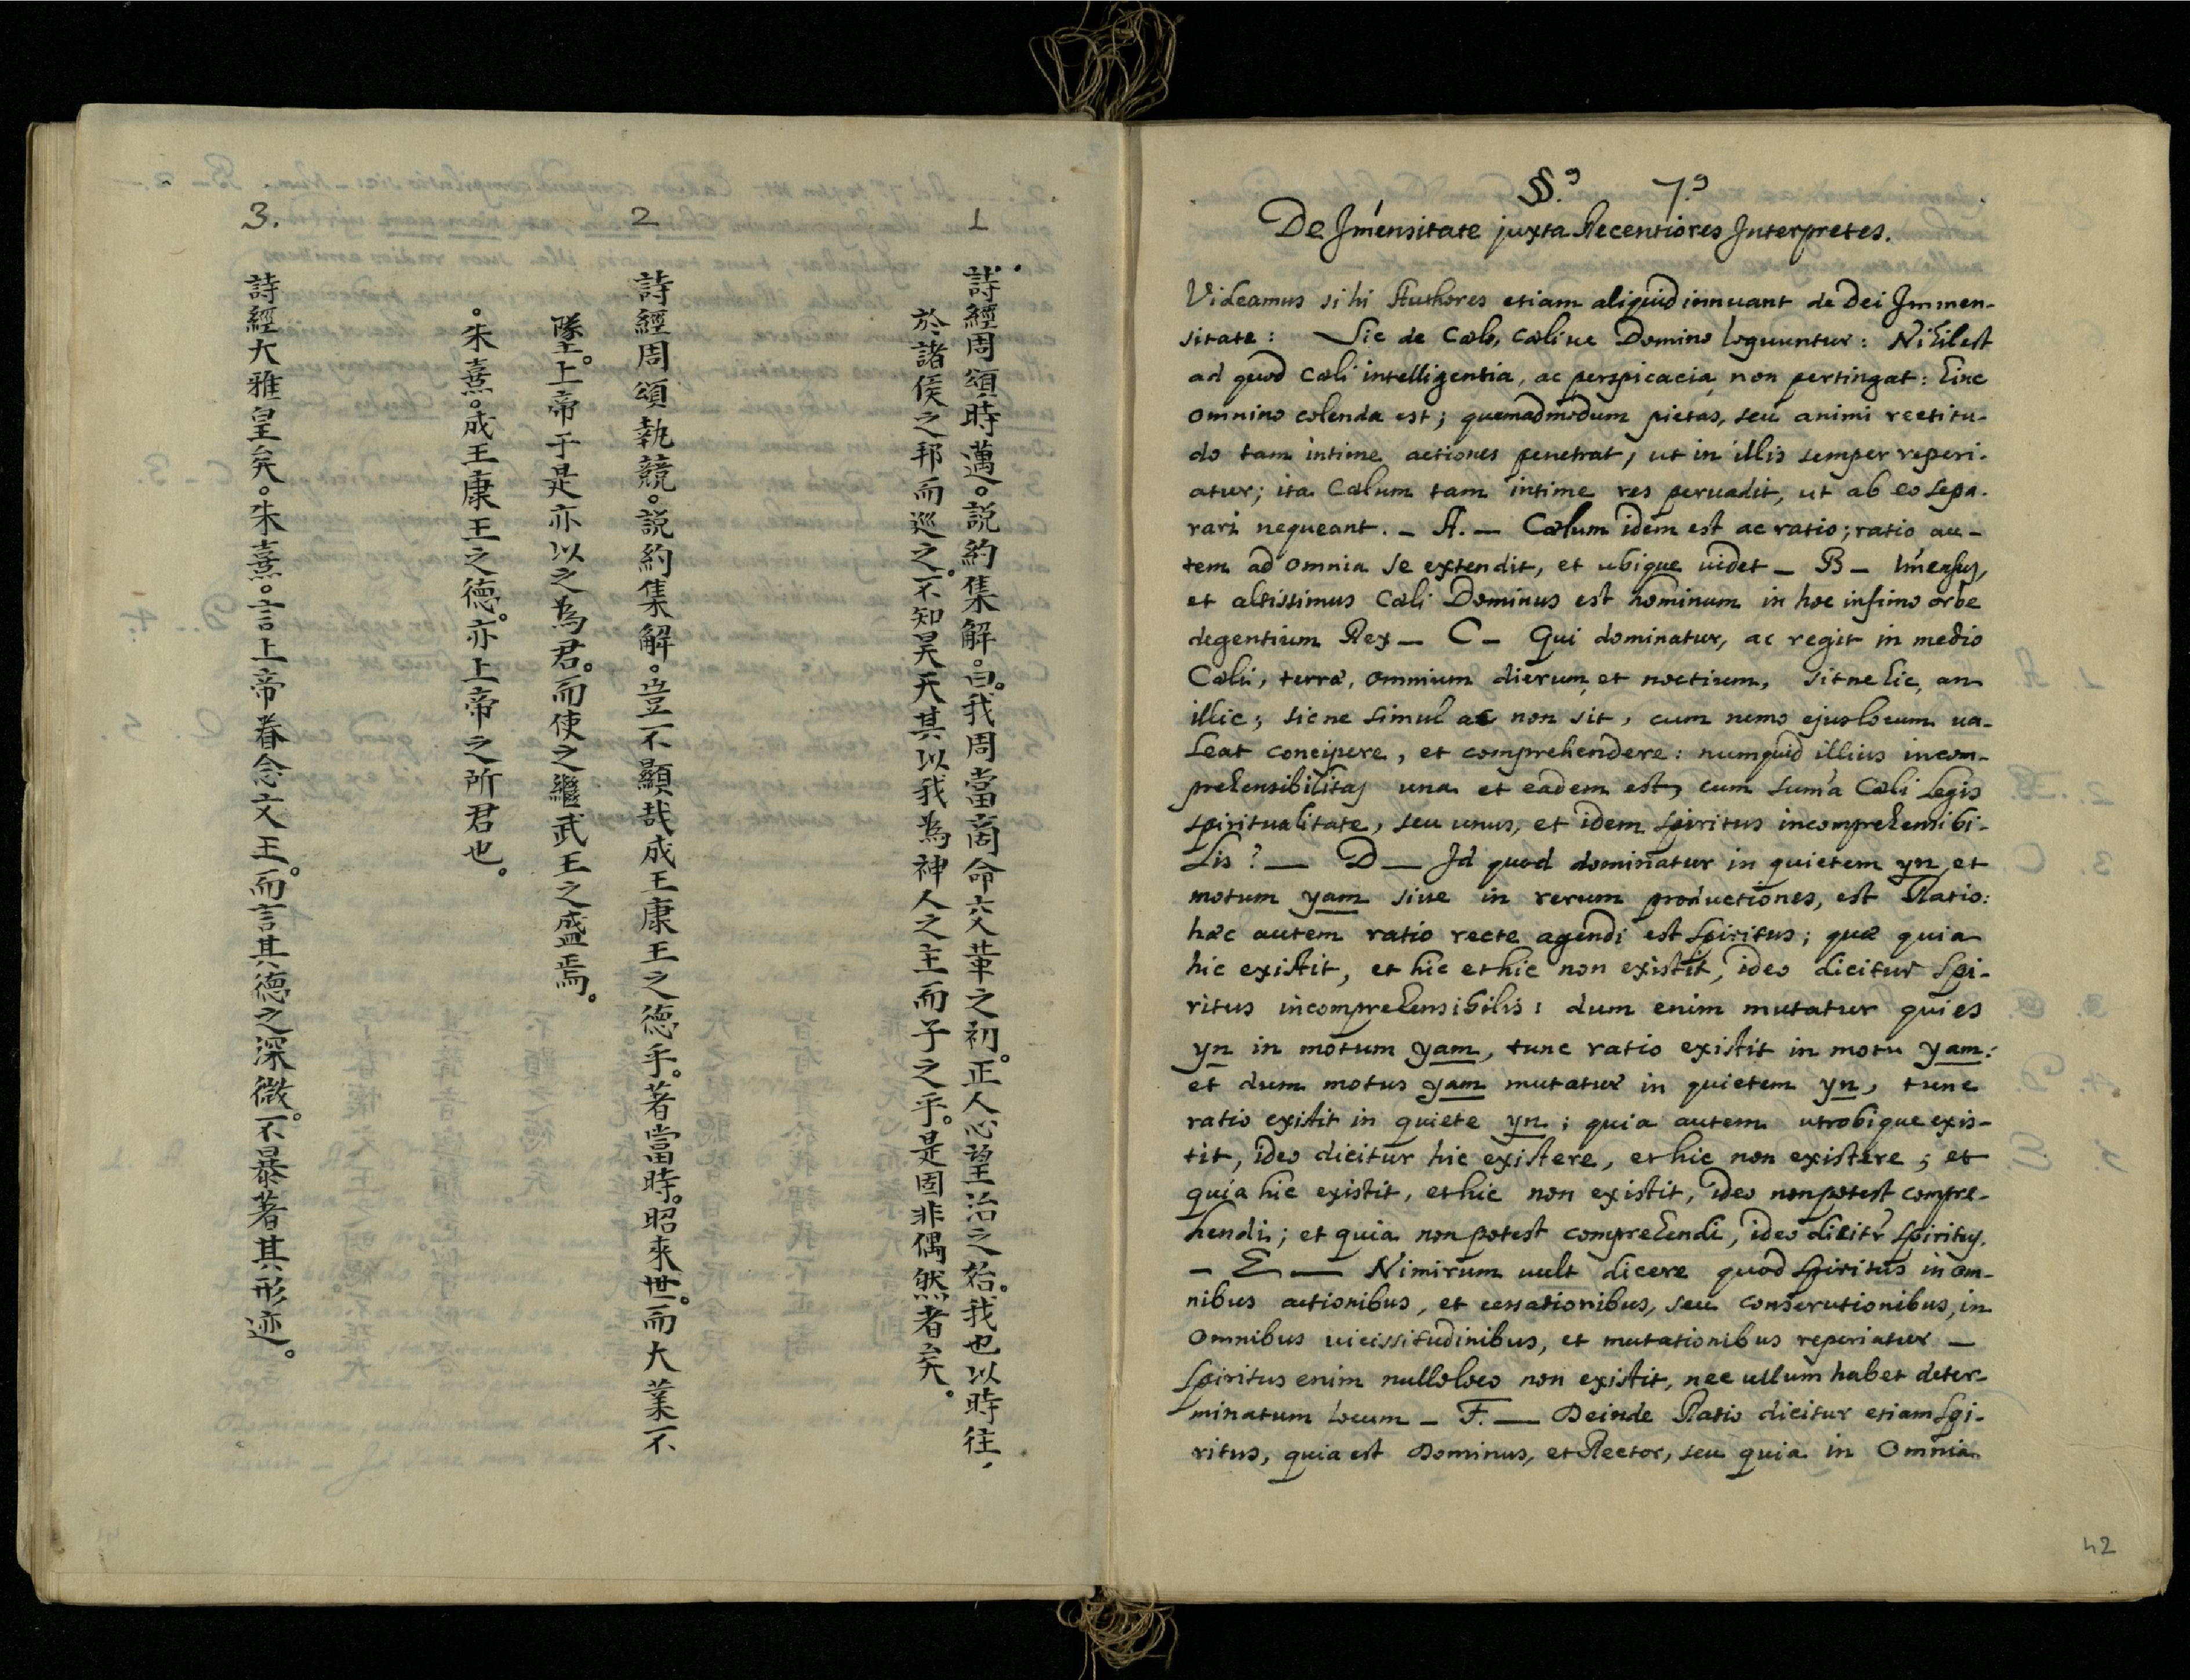 1
詩經周頌時邁。說約集解。曰。我周當商命六革之初。正人心望治之始。我也以時往,
於諸侯之邦而巡之。不知昊天其以我為神人之主而子之乎。是固非偶然者矣。
2
詩經周頌執競。說約集解。豈不顯哉成王康王之德乎。著當時。昭來世。而大業不
墜。上帝于是亦以之為君。而使之繼武王之盛焉。
。朱熹。成王康王之德。亦上帝之所君也。
3.
詩經大雅皇矣。朱熹。言上帝眷念文王。而言其德之深微。不暴著其形迹。
§.º 7.º
De Im̃ensitate juxta Recentiores Interpretes.
Videamus si hi Authores etiam aliquid innuant de Dei Immen-
sitate: Sic de Cælo, cælive Domino loquuntur: Nihil est
ad quod Cæli intelligentia, ac perspicacia non pertingat: hinc
omnino colenda est; quemadmodum pietas, seu animi rectitu-
do tam intime actiones penetrat, ut in illis semper reperi-
atur; ita Cælum tam intime res pervadit, ut ab eo sepa-
rari nequeant. _ A. _ Cælum idem est ac ratio; ratio au-
tem ad omnia se extendit, et ubique videt _ B _ Im̃ensus,
et altissimus Cæli Dominus est hominum in hoc infimo orbe
degentium Rex _ C _ Qui dominatur, ac regit in medio
Cæli, terræ, omnium dierum et noctium, sitne hic, an
illic; sicne simul ac non sit, cum nemo ejus locum va-
leat concipere, et comprehendere: numquid illius incom-
prehensibilitas una et eadem est, cum sum̃a Cæli legis
spiritualitate, seu unus, et idem spiritus incomprehensibi-
lis? _ D _ Id quod dominatur in quietem yn, et
motum yam sive in rerum productiones, est Ratio:
hæc autem ratio recte agendi est spiritus; quæ quia
hic existit, et hic et hic non existit, ideo dicitur spi-
ritus incomprehensibilis: dum enim mutatur quies
yn in motum yam, tunc ratio existit in motu yam:
et dum motus yam mutatur in quietem yn, tunc
ratio existit in quiete yn; quia autem utrobique exis-
tit, ideo dicitur hic existere, et hic non existere; et
quia hic existit, et hic non existit, ideo non potest compre-
hendi; et quia non potest comprehendi, ideo dicitr̃ spiritus.
_ E _ Nimirum vult dicere quod spiritus in om-
nibus actionibus, et cessationibus, seu consecutionibus, in
omnibus vicissitudinibus, et mutationibus reperiatur _
spiritus enim nullo loco non existit, nec ullum habet deter-
minatum locum _ F. _ Deinde Ratio dicitur etiam spi-
ritus, quia est Dominus, et Rector, seu quia in omnia
42